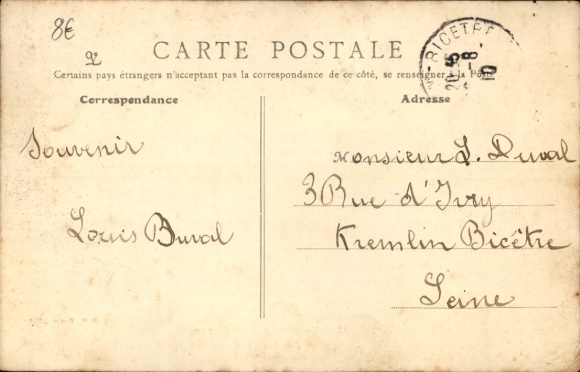 8€
92
CARTE POSTALE
BICETRE
20-45
-8-
10
Certains pays étrangers n'acceptant pas la correspondance de ce côté, se renseigner à la Poste
Correspondance
Adresse
Souvenir
Louis Duval
Monsieur L. Duval
3 Rue d'Ivry
Kremlin Bicêtre
Seine